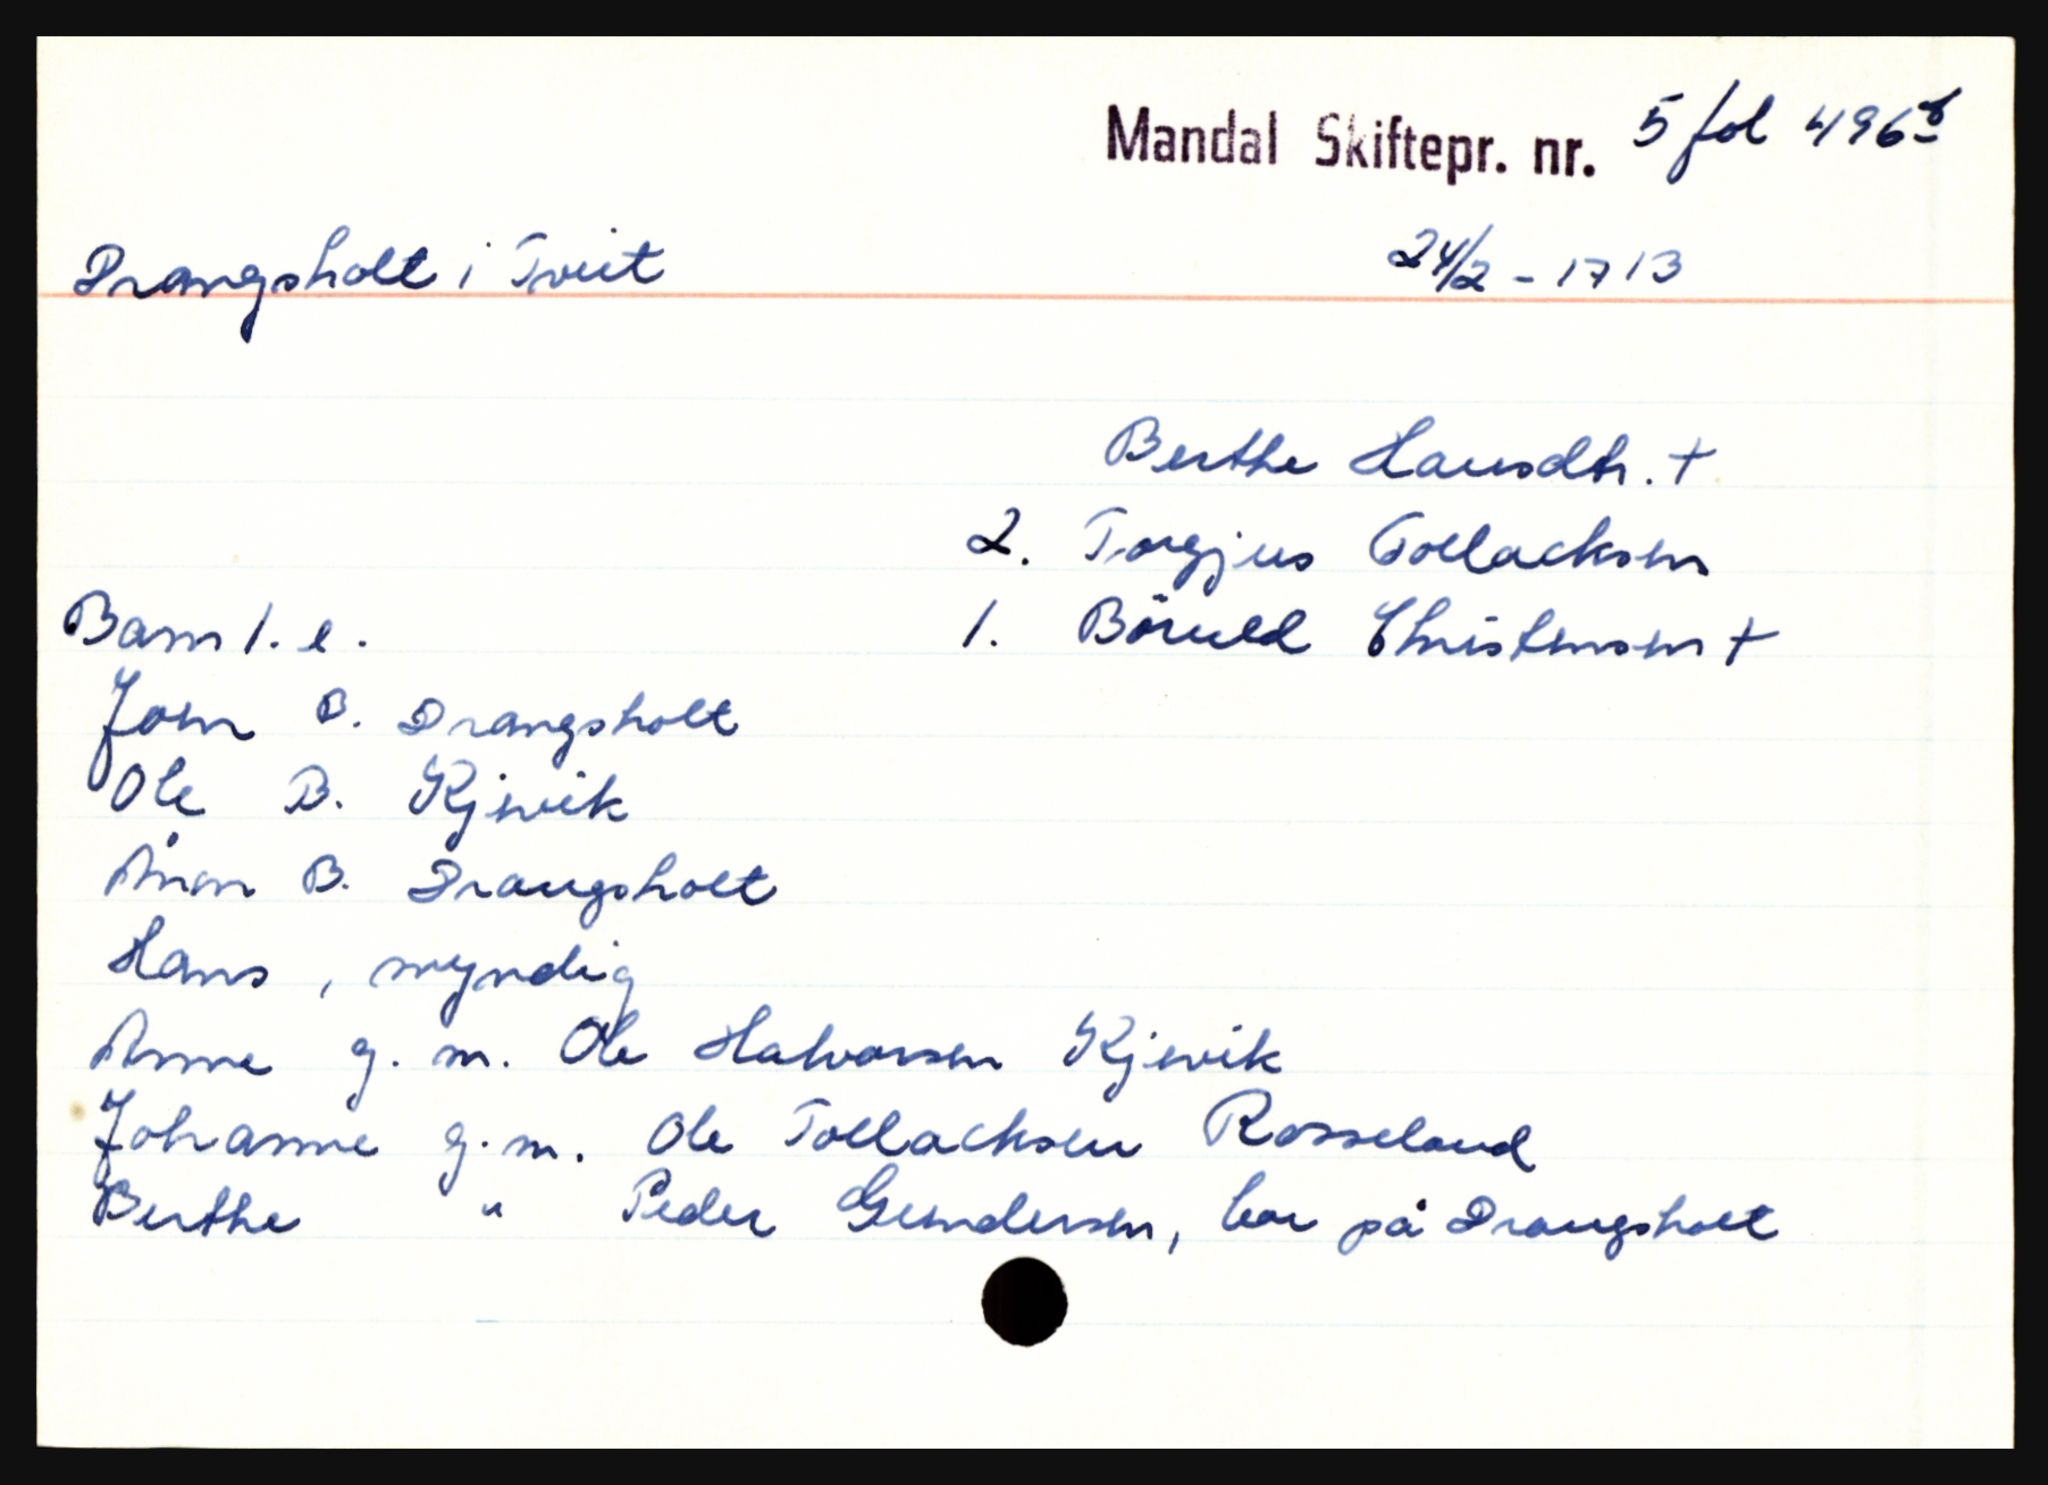 Mandal Skiftepr. nr. 5 fol 496b
Drangsholt i Tveit 24/2 - 1713
Berthe Hansdtr. +
2. Torgjus Tollacksen
Barn 1. e. 1. Böruld Christensen +
Jon B. Drangsholt
Ole B. Kjevik
Ånon B. Drangsholt
Hans, myndig
Anne g. m. Ole Halvorsen Kjevik
Johanne g. m. Ole Tollacksen Rosseland
Berthe " Peder Gundersen, bor på Drangsholt